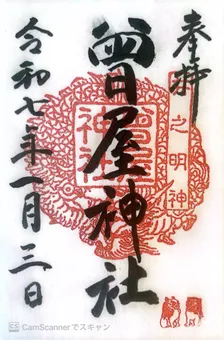 奉拝
曽屋神社
令和七年一月三日
曽屋
神社
之明神
CS CamScannerでスキャン